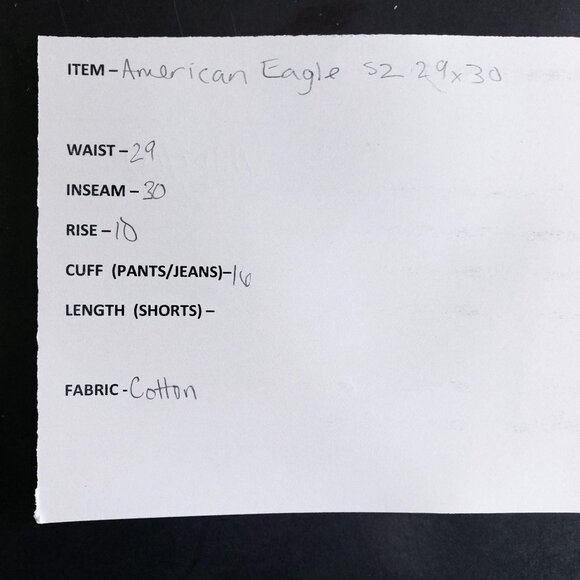 ITEM – American Eagle sz 29x30
WAIST – 29
INSEAM – 30
RISE – 10
CUFF (PANTS/JEANS)– 16
LENGTH (SHORTS) –
FABRIC - Cotton